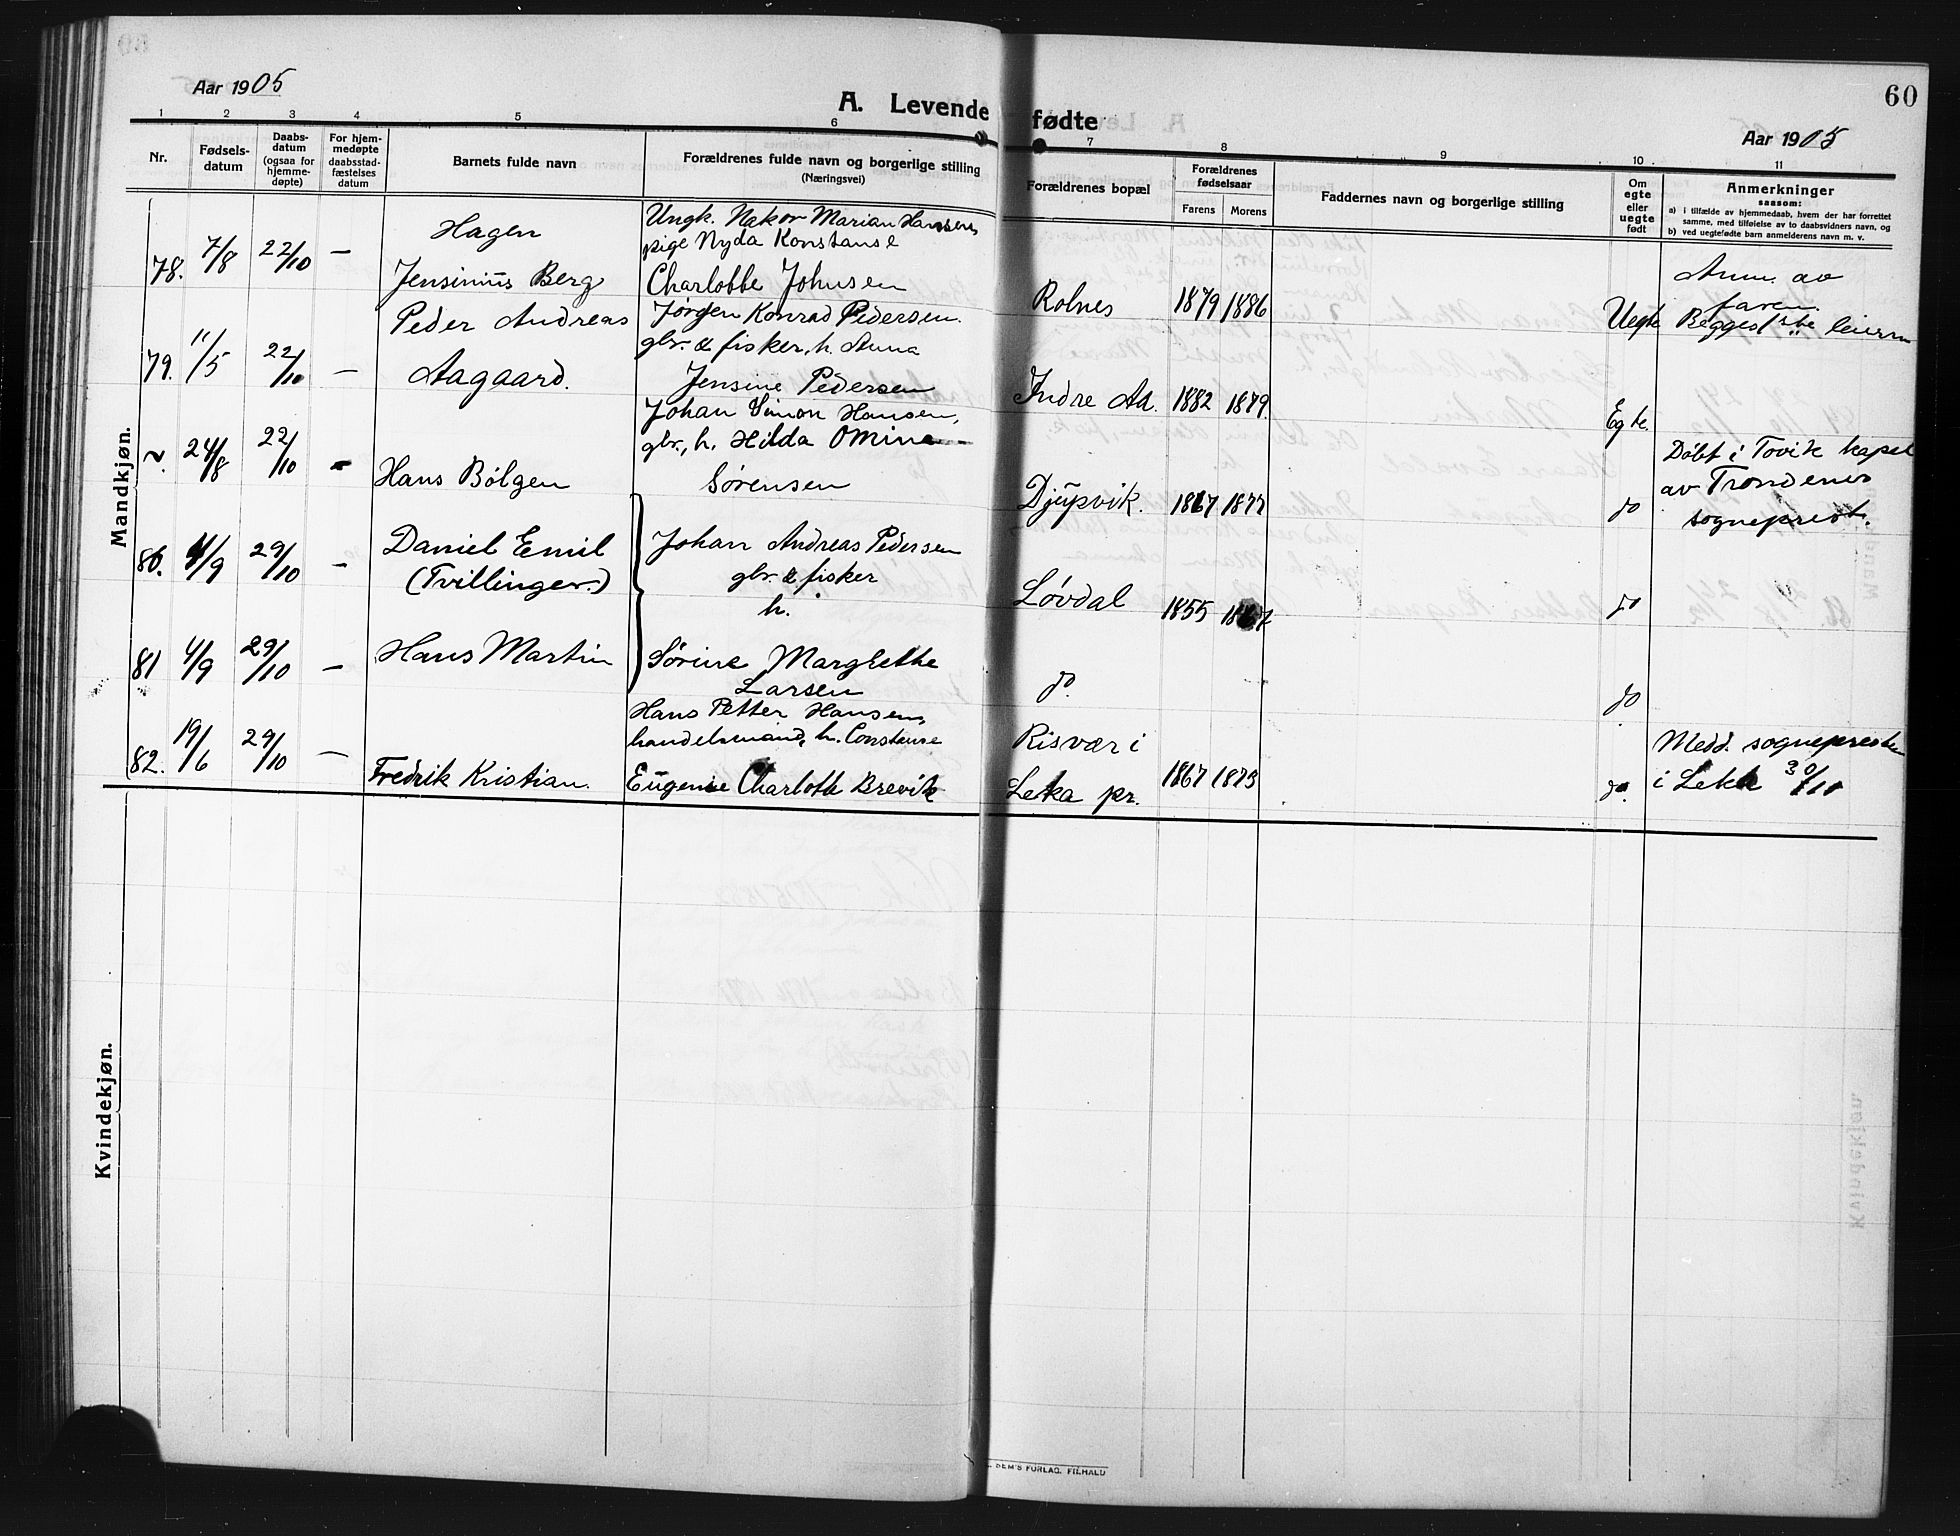 60
Aar 1905
A. Levende fødte
Aar 1905
1 2 3 4 5 6 7 8 9 10 11
Nr.
Fødsels-
datum
Daabs-
datum
(ogsaa for
hjemme-
døpte)
For hjem-
medøpte
daabsstad-
fæstelses
datum
Barnets fulde navn
Forældrenes fulde navn og borgerlige stilling
(Næringsvei)
Forældrenes bopæl
Forældrenes
fødselsaar
Farens Morens
Faddernes navn og borgerlige stilling
Om
egte
eller
uegte
født
Anmerkninger
saasom:
a) i tilfælde av hjemmedaab, hvem der har forrettet
samme, med tilføielse av to daabsvidners navn, og
b) ved uegtefødte barn anmelderens navn m. v.
Mandkjøn.
78. 7/8 22/10 —
Hagen
Jensinius Berg
Ungk. Nakor Marian Hansen,
pige Nyda Konstanse
Charlotte Johnsen
Rolnes 1879 1886 Uegte
Anm. av
faren
Begges 1ste leierm
79. 11/5 22/10 —
Peder Andreas
Aagaard.
Jørgen Konrad Pedersen.
gbr. & fisker, h. Anna
Jensine Pedersen
Indre Aa. 1882 1879. Egte.
24/8 22/10 -
Hans Bølgen
Johan Simon Hansen,
gbr., h. Hilda Omine
Sørensen
Djupvik. 1867 1877 do
Døbt i Tovik kapel
av Trondenes
sogneprest.
80. 4/9 29/10 -
Daniel Emil
(Tvillinger.)
Johan Andreas Pedersen
gbr. & fisker
h.
Løvdal 1855 1867 do
81 4/9 29/10 —
Hans Martin
Sørine Margrethe
Larsen
do. do
82. 19/6 29/10 —
Fredrik Kristian.
Hans Petter Hansen,
handelsmand, h. Constanse
Eugenie Charlotte Brevik
Risvær i
Leka pr. 1867 1873 do.
Medd. sognepresten
i Leka 30/10
Kvindekjøn.
BEM'S FORLAG. FILHALD